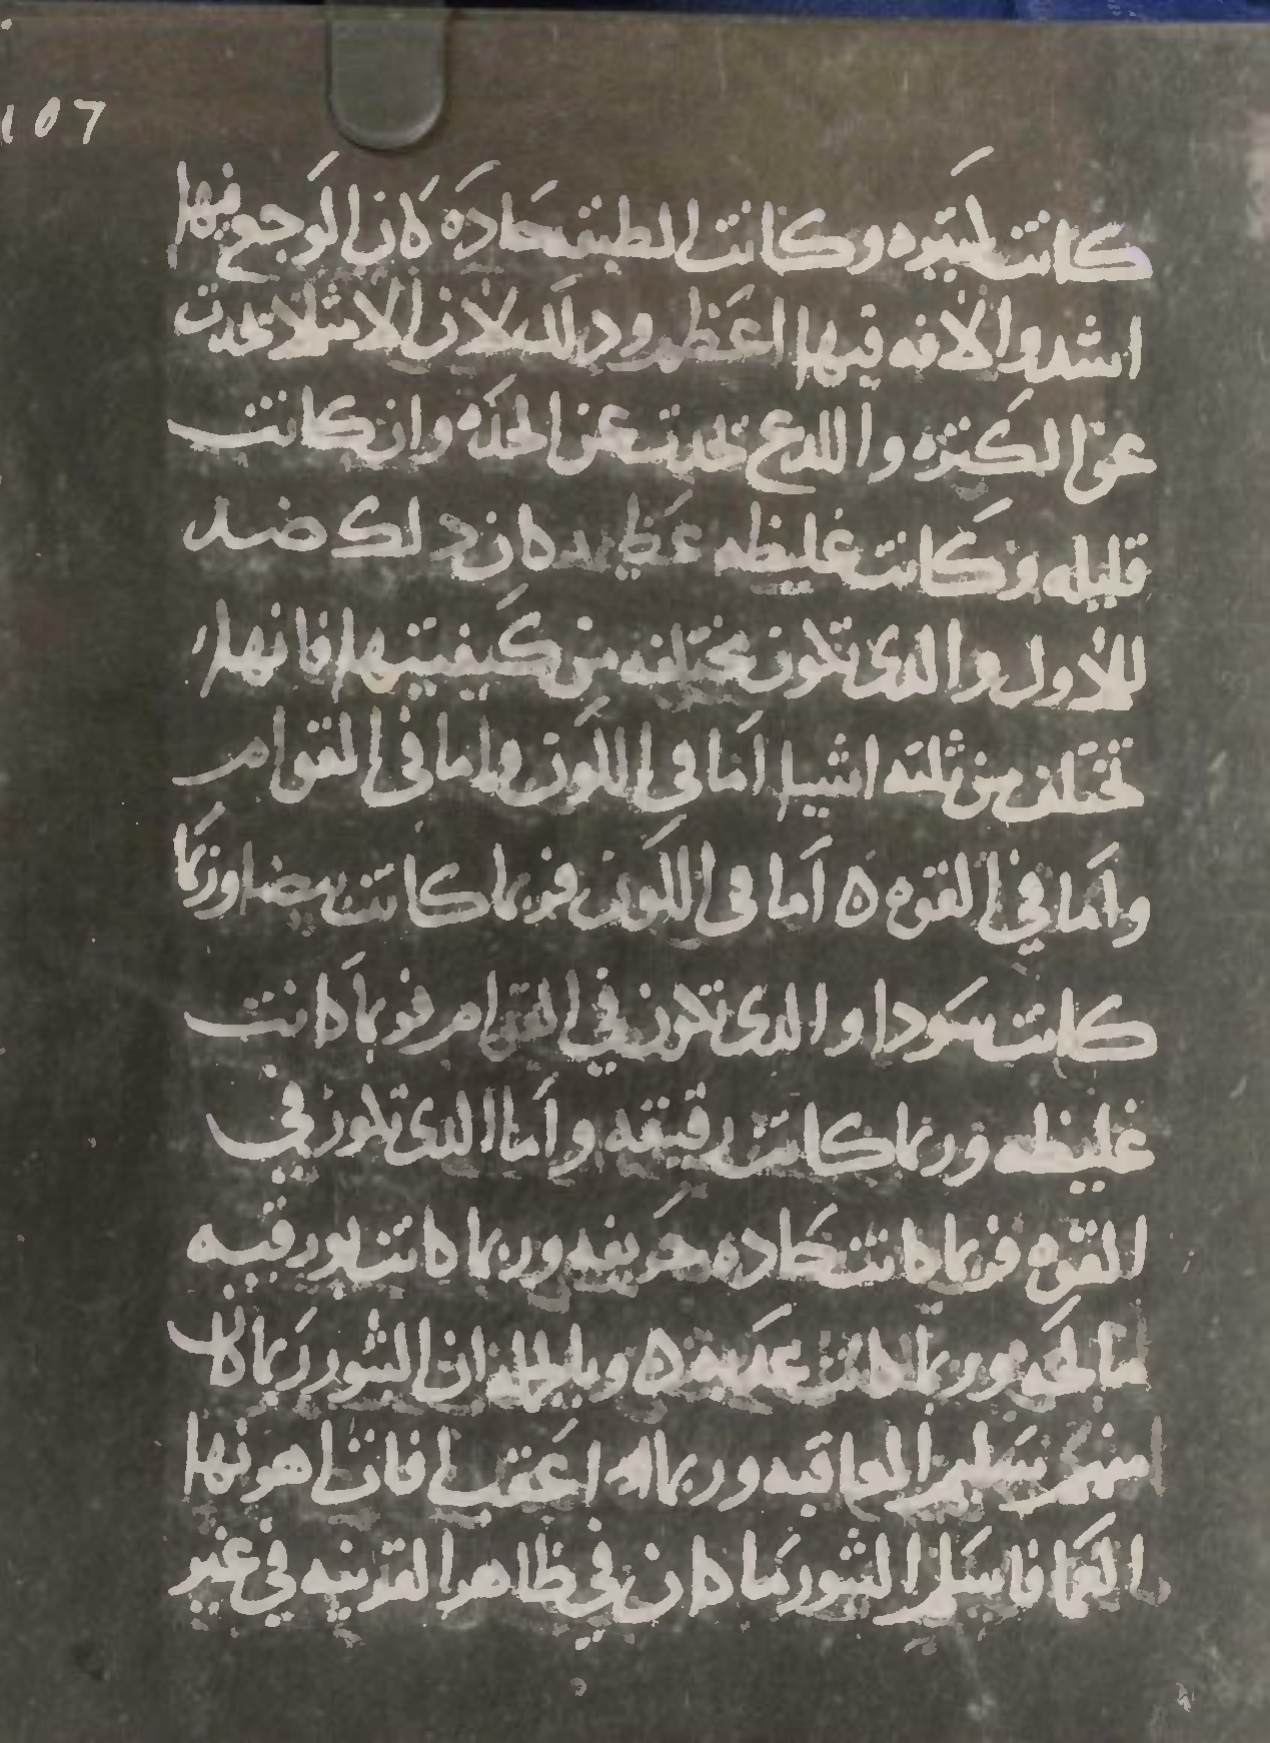 107
كانت كثيره وكانت لطيفه حاده كان الوجع فيها
اشد والافه فيها اعظم ودلك لان الامتلا يحدث
عن الكثره واللدع يحدث عن الحده وان كانت
قليله وكانت غليظه عظيمه كان دلك ضد
للاول والدى تكون مختلفه من كيفيتها فانها
تختلف من ثلثه اشيا اما فى اللون واما فى القوام
واما في القوه ه اما فى اللون فربما كانت بيضا وربما
كانت سودا والدى تكون في القوام فربما كانت
غليظه وربما كانت رقيقه واما الدى تكون في
القوه فربما كانت حاده حريفه وربما كانت بورقيه
مالحه وربما كانت عدبه ه وبالجمله ان البثور ربما كان
منهم سليم العاقبه وربما اعقب فان اهونها
العما فاسلم البثور ما كان في ظاهر القرنيه في غير